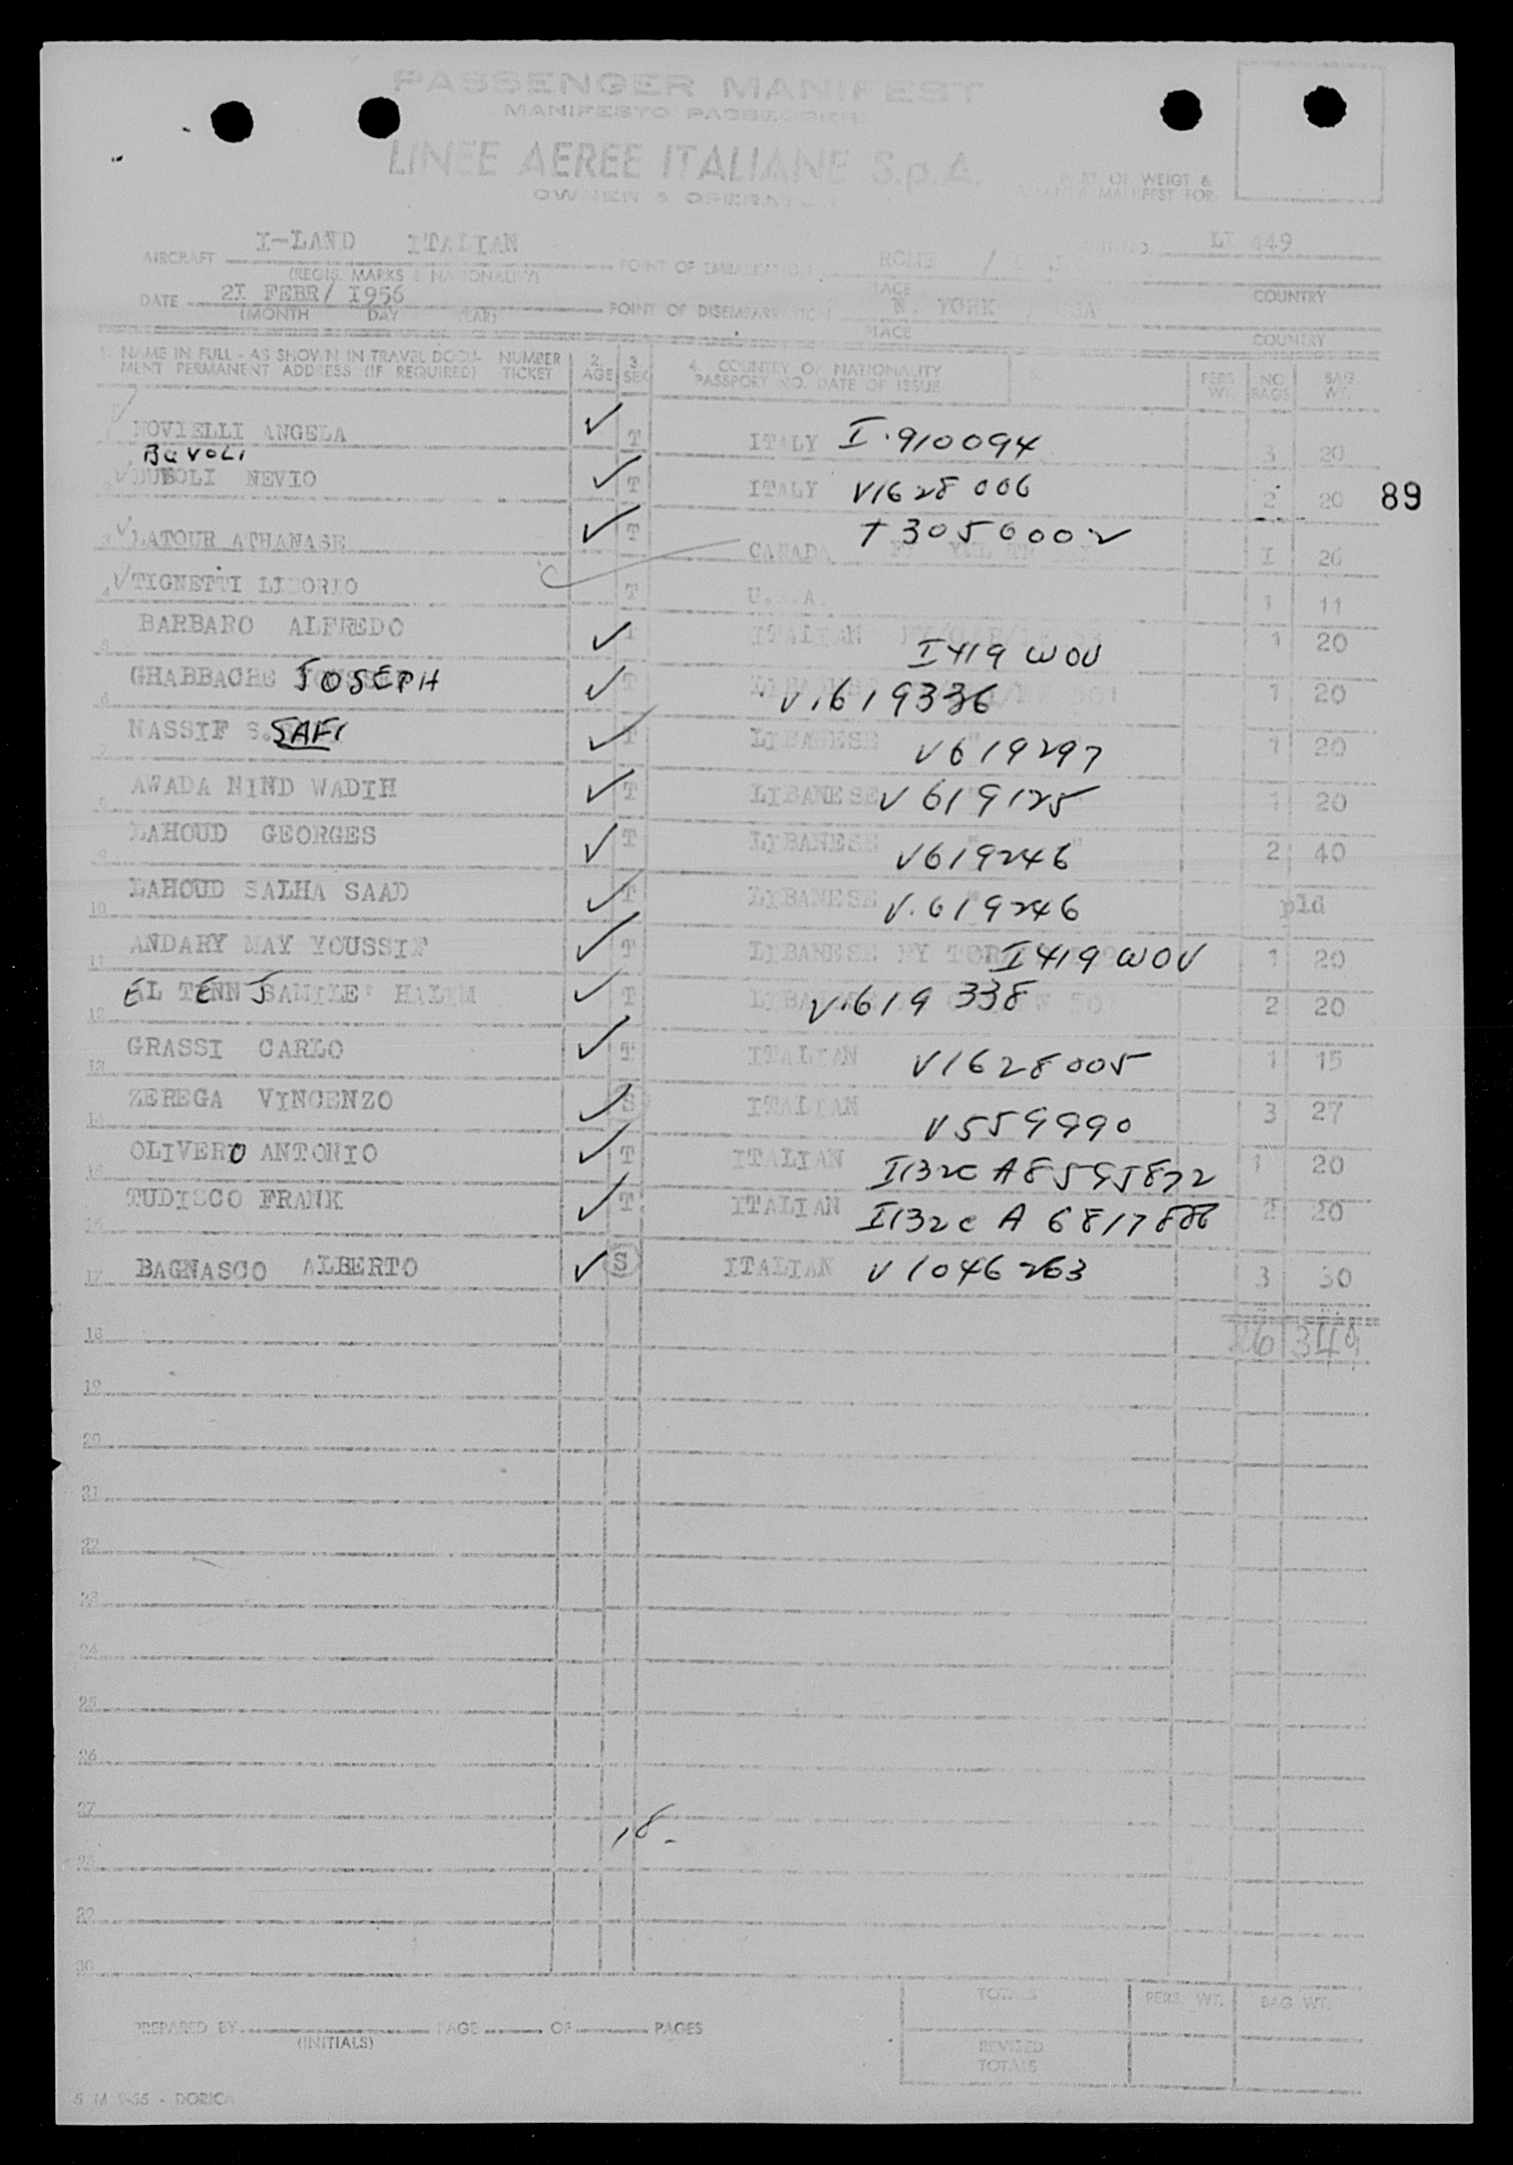 PASSENGER MANIFEST
MANIFESTO PASSEGGERI
LINEE AEREE ITALIANE S.p.A.
OWNER & OPERATOR
PART OF WEIGT &
MANIFEST FOR
AIRCRAFT I-LAND ITALIAN POINT OF EMBARKATION ROME / LI 449
(REGIS. MARKS & NATIONALITY) PLACE COUNTRY
DATE 2I FEBR/ I956 POINT OF DISEMBARKATION N. YORK / USA
(MONTH DAY YEAR) PLACE COUNTRY
1. NAME IN FULL - AS SHOWN IN TRAVEL DOCU- NUMBER 2. 3. 4. COUNTRY OF NATIONALITY PERS. NO. BAG
MENT PERMANENT ADDRESS (IF REQUIRED) TICKET AGE SEX PASSPORT NO. DATE OF ISSUE WT. BAGS WT.
NOVIELLI ANGELA ✓ T ITALY I.910094 3 20
BUVOLI
✓ NEVIO ✓ T ITALY V1628006 2 20 89
3 ✓ LATOUR ATHANASE ✓ T CANADA T3056002 I 20
4 ✓ TIGNETTI LIBORIO T U.S.A. 1 11
5 BARBARO ALFREDO ✓ T ITALIAN I419 WOV 1 20
6 GHABBACHE JOSEPH ✓ T V.619336 1 20
7 NASSIF S. SAFI ✓ T LIBANESE V619297 1 20
8 AWADA HIND WADIH ✓ T LIBANESE V619125 1 20
9 LAHOUD GEORGES ✓ T LIBANESE V619246 2 40
10 LAHOUD SALHA SAAD ✓ T LIBANESE V.619246 pld
11 ANDARY MAY YOUSSIF ✓ T LIBANESE I419 WOV 1 20
12 EL TENN JAMILE HALIM ✓ T V.619338 2 20
13 GRASSI CARLO ✓ T ITALIAN V1628005 1 15
14 ZEREGA VINCENZO ✓ S ITALIAN V559990 3 27
15 OLIVERO ANTONIO ✓ T ITALIAN I132c A8595872 1 20
16 TUDISCO FRANK ✓ T ITALIAN I132c A 6817886 2 20
17 BAGNASCO ALBERTO ✓ S ITALIAN V1046263 3 30
18 26 349
19
20
21
22
23
24
25
26
27
18-
28
29
30
TOTALS PERS. WT. BAG WT.
PREPARED BY PAGE OF PAGES
(INITIALS) REVISED
TOTALS
5 M 9-55 - DORICA